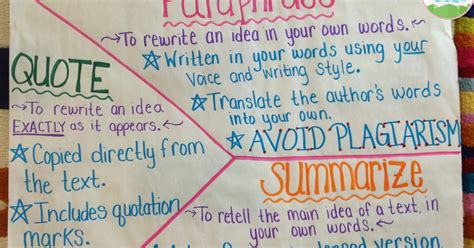 Paraphrase
→To rewrite an idea in your own words.←
☆Written in your words using your
Voice and Writing Style.
☆Translate the author's words
into your own.
☆AVOID PLAGIARISM
QUOTE
→To rewrite an idea
EXACTLY as it appears.←
☆Copied directly from
the text.
☆Includes quotation
marks.
Summarize
→To retell the main idea of a text, in
your own words.←